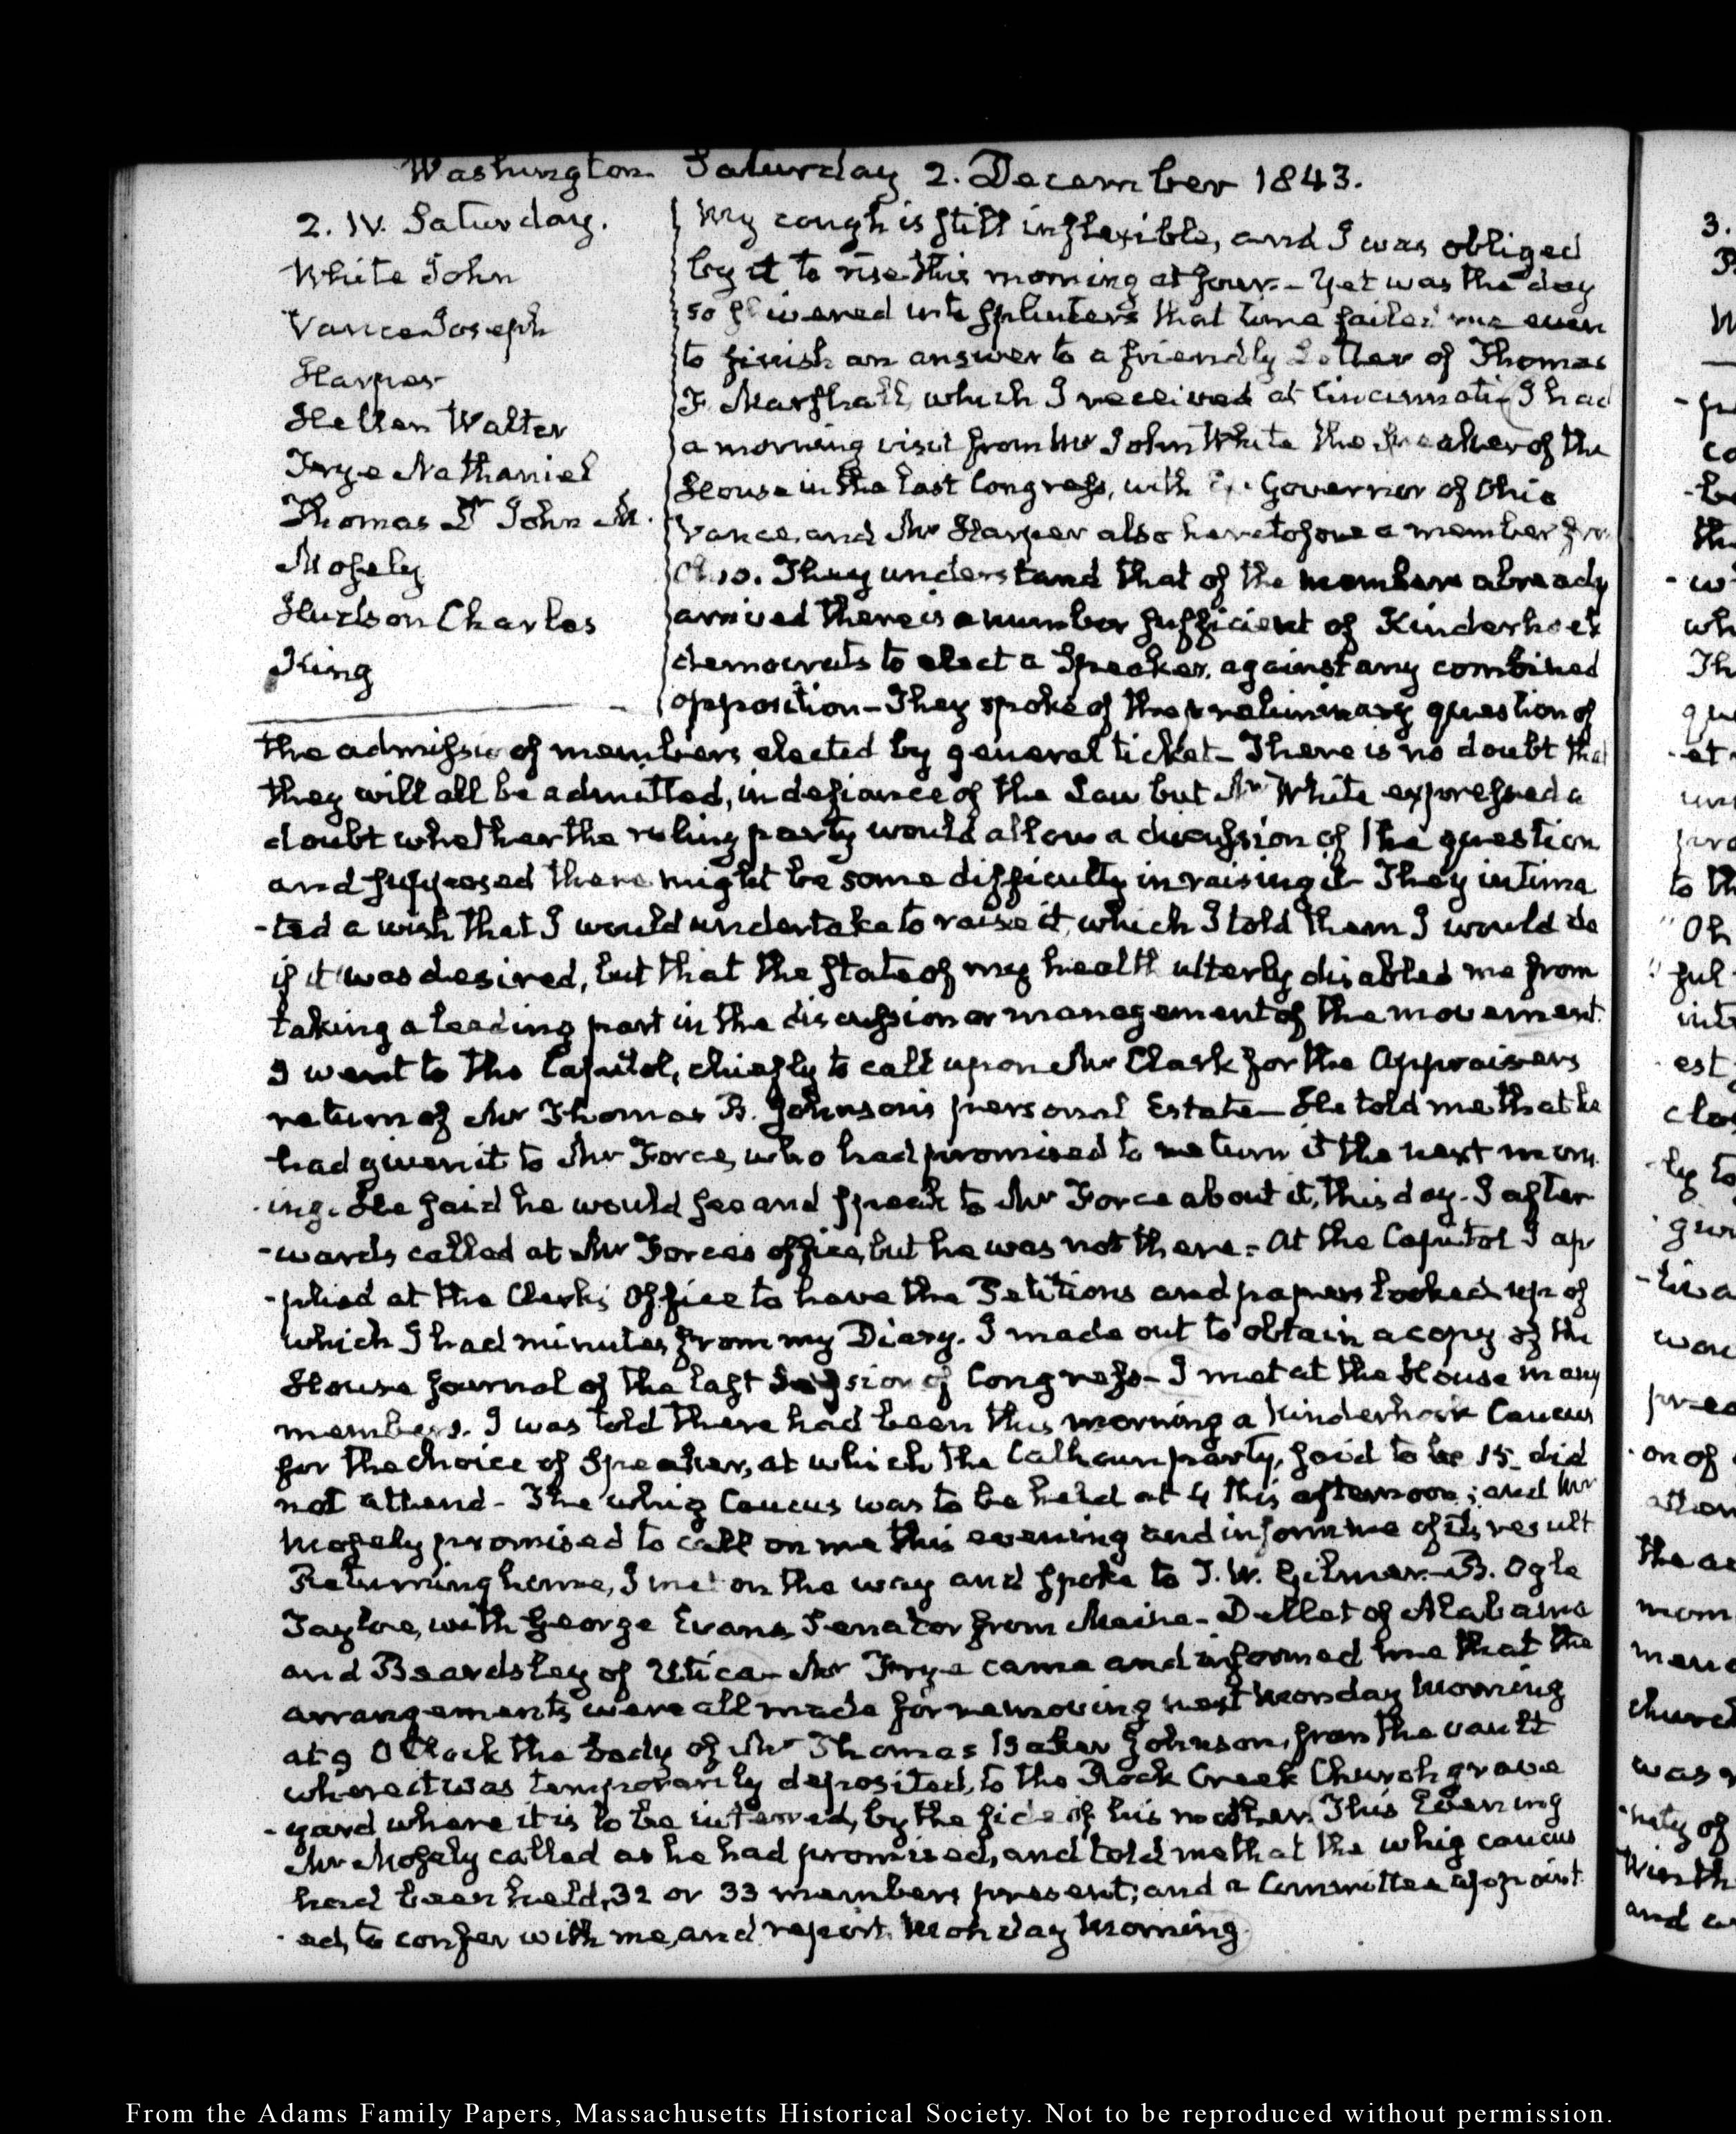 Washington Saturday 2. December 1843.
2. IV. Saturday.
White John
Vance Joseph
Harper
Hellen Walter
Frye Nathaniel
Thomas Dr John M.
Mosely
Hudson Charles
King
My cough is still inflexible, and I was obliged
by it to rise this morning at four. – Yet was the day
so shivered into splinters that time failed me even
to finish an answer to a friendly Letter of Thomas
F. Marshall, which I received at Cincinnati. I had
a morning visit from Mr John White the Speaker of the
House in the last Congress, with Ex. Governor of Ohio
Vance, and Mr Harper also heretofore a member from
Ohio. They understand that of the members already
arrived there is a number sufficient of Kinderhook
democrats to elect a Speaker, against any combined
opposition – They spoke of the preliminary question of
the admission of members elected by general ticket – There is no doubt that
they will all be admitted, in defiance of the Law but Mr White expressed a
doubt whether the ruling party would allow a discussion of the question
and supposed there might be some difficulty in raising it – They intima
-ted a wish that I would undertake to raise it, which I told them I would do
if it was desired, but that the state of my health utterly disabled me from
taking a leading part in the discussion or management of the movement.
I went to the Capitol, chiefly to call upon Mr Clark for the Appraisers
return of Mr Thomas B. Johnson's personal Estate – He told me that he
had given it to Mr Force, who had promised to return it the next morn
-ing. He said he would see and speak to Mr Force about it, this day. I after
-wards called at Mr Force's office, but he was not there – At the Capitol I ap
-plied at the Clerk's Office to have the Petitions and papers looked up of
which I had minutes from my Diary. I made out to obtain a copy of the
House Journal of the last Session of Congress – I met at the House many
members. I was told there had been this morning a Kinderhook Caucus
for the choice of Speaker, at which the Calhoun party, said to be 15 did
not attend – The whig Caucus was to be held at 4 this afternoon; and Mr
Mosely promised to call on me this evening and inform me of its result
Returning home, I met on the way and spoke to T. W. Gilmer – B. Ogle
Tayloe, with George Evans Senator from Maine – Dellet of Alabama
and Beardsley of Utica – Mr Frye came and informed me that the
arrangements were all made for removing next Monday Morning
at 9 O'Clock the body of Mr Thomas Baker Johnson, from the vault
where it was temporarily deposited, to the Rock Creek Church grave
-yard where it is to be interred, by the side of his mother. This Evening
Mr Mosely called as he had promised, and told me that the whig caucus
had been held, 32 or 33 members present; and a Committee appoint
-ed, to confer with me, and report Monday Morning.
From the Adams Family Papers, Massachusetts Historical Society. Not to be reproduced without permission.